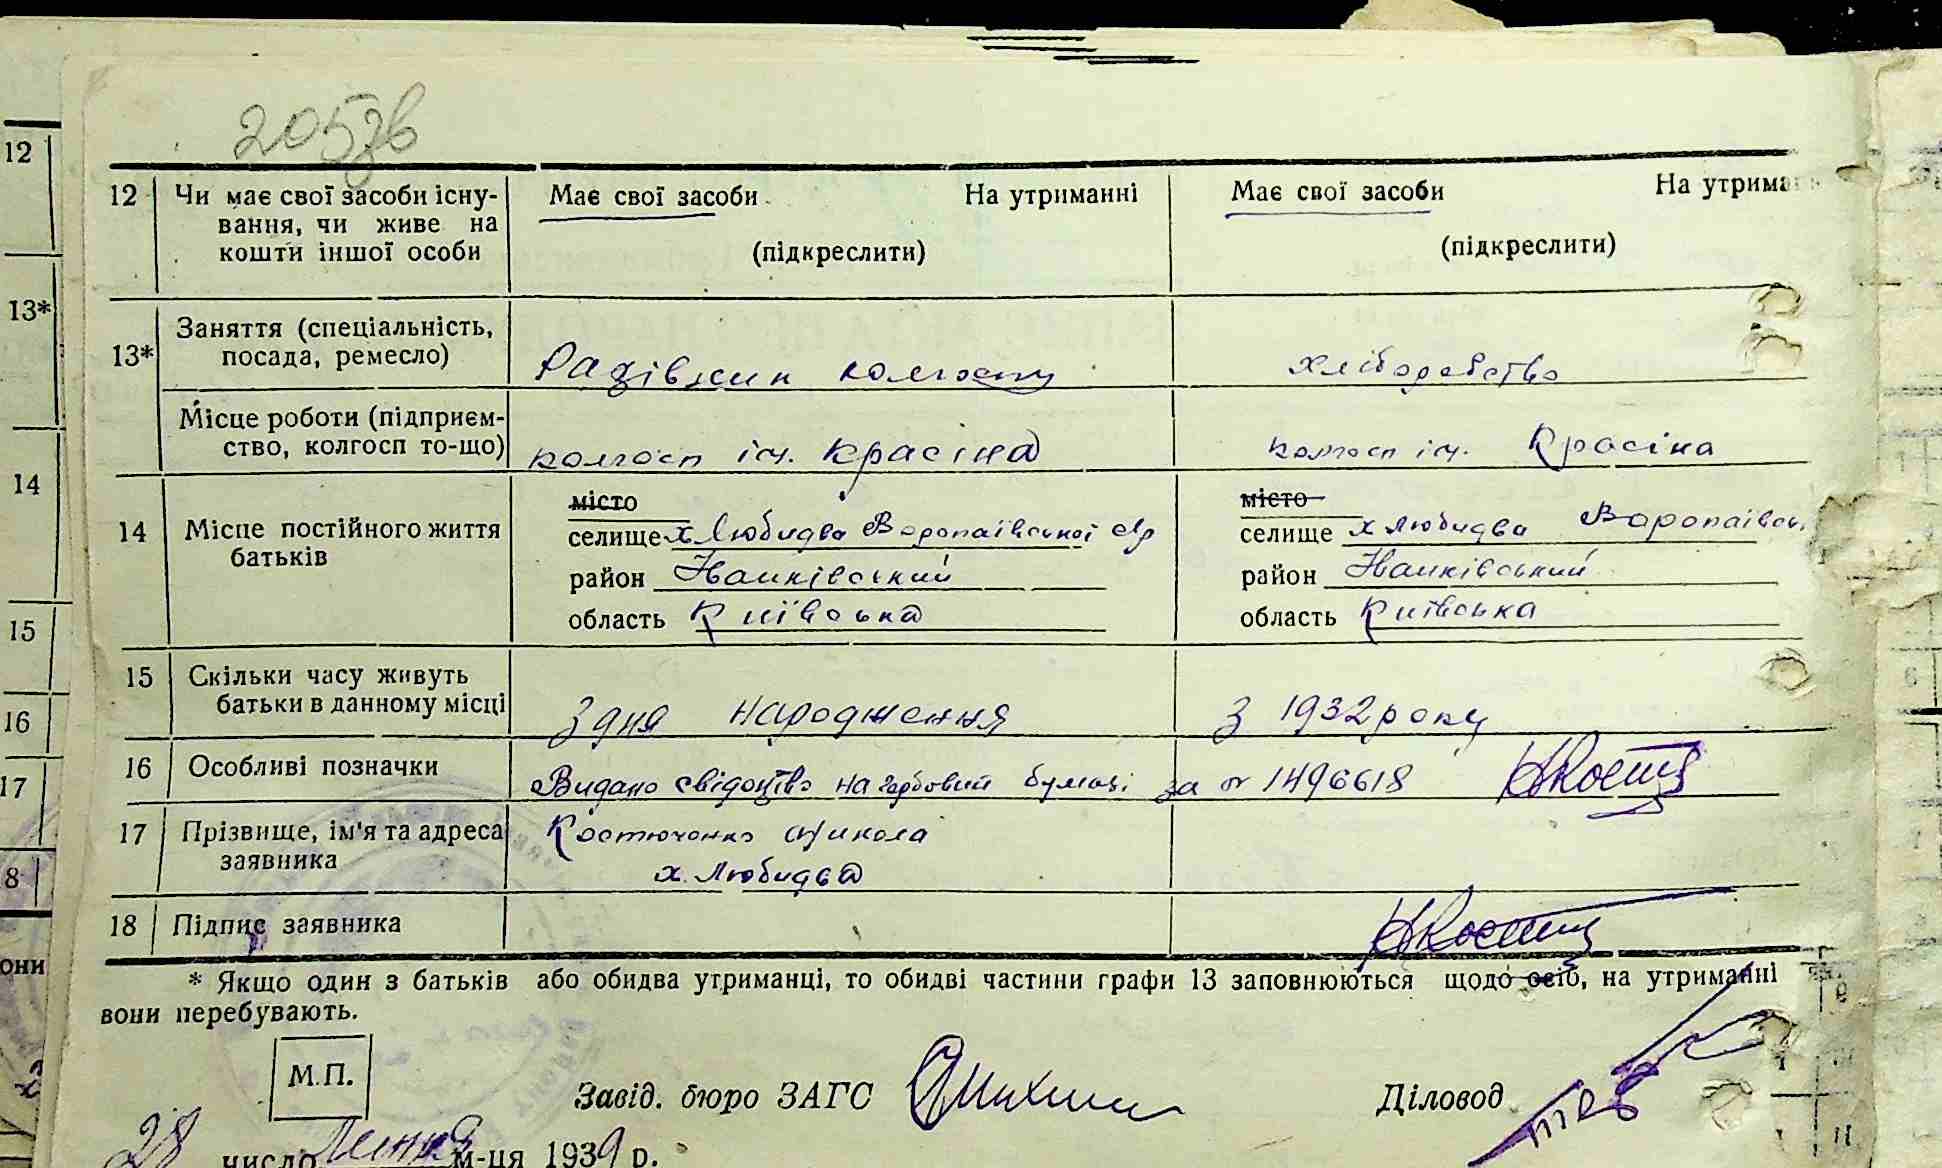 205зв
12 Чи має свої засоби існу- Має свої засоби На утриманні Має свої засоби На утрима
вання, чи живе на
кошти іншої особи (підкреслити) (підкреслити)
13* Заняття (спеціальність,
посада, ремесло) колгоспу хліборобство
Місце роботи (підприєм-
ство, колгосп то-що) колгосп ім. Красіна колгосп ім. Красіна
14 Місце постійного життя
батьків
місто місто
селище х. Любидва Воропаївської с/р селище х Любидва Воропаївсь
район Іванківський район Іванківський
область Київська область Київська
15 Скільки часу живуть
батьки в данному місці З дня народження З 1932 року
16 Особливі позначки Видано свідоцтво на гербовий бумазі за № 1496618
17 Прізвище, ім'я та адреса Костюченко Микола
заявника х. Любидва
18 Підпис заявника
* Якщо один з батьків або обидва утриманці, то обидві частини графи 13 заповнюються щодо осіб, на утриманні
вони перебувають.
М.П.
Завід. бюро ЗАГС Діловод
28 число Липня м-ця 1939 р.
12
13*
14
15
16
17
8
они